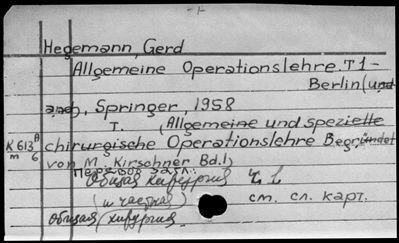 -1-
Hegemann, Gerd
Allgemeine Operationslehre. T 1 -
Berlin (und
and), Springer, 1958
T. (Allgemeine und spezielle
К 613 A chirurgische Operationslehre Begründet
m 6 von M. Kirschner Bd.1)
Перевод загл.:
Общая хирургия ч. 1
(и частная) см. сл. карт.
общая хирургия